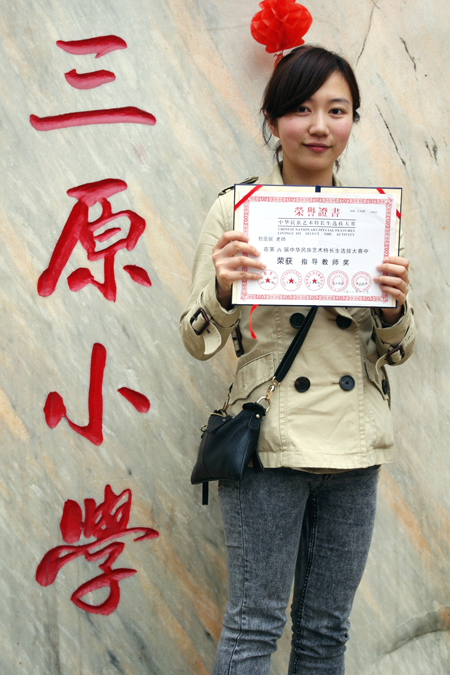 三
原
小
学
荣誉證書
中华民族艺术特长生选拔大赛
CHINESE NATIONALITY SPECIAL FEATURES
LIVINGS IS SELECT THE ACTIVITY
老师
在第六届中华民族艺术特长生活拔大赛中
荣获 指导教师奖